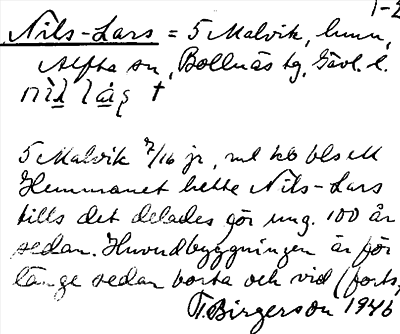 1-2
Nils-Lars = 5 Malvik, hmn,
Alfta sn, Bollnäs tg, Gävl. l.
5 Malvik 7/16 jr, ml kb bls M
Hemmanet hette Nils-Lars
tills det delades för ung. 100 år
sedan. Huvudbyggningen är för
länge sedan borta och vid (forts,
T. Birgerson 1946